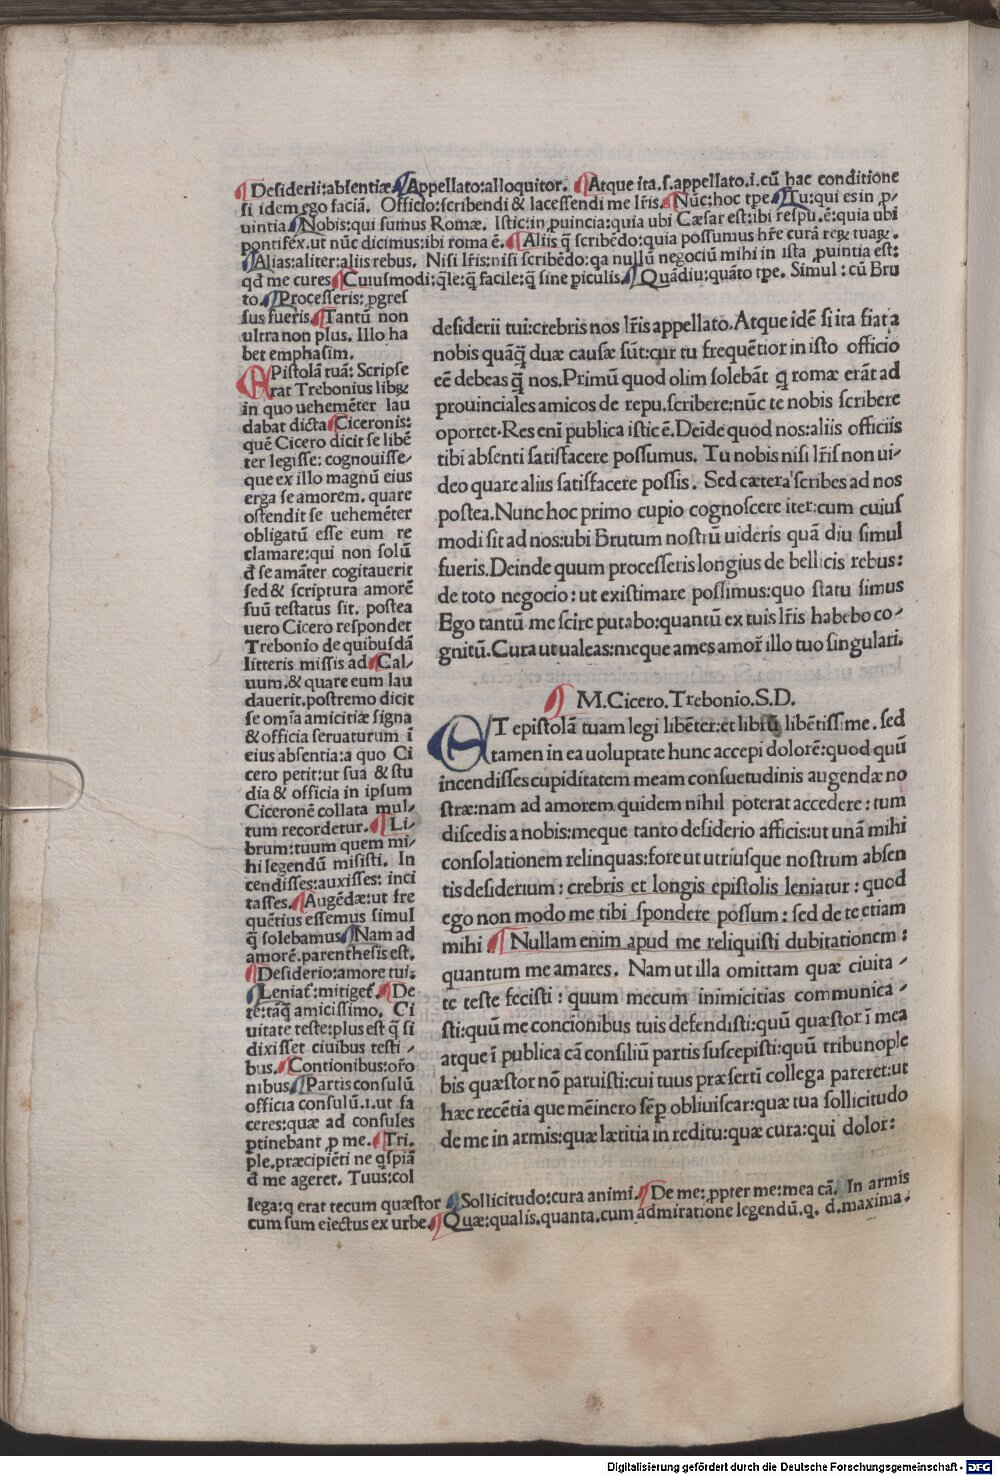 ¶Desiderii:absentiæ ¶Appellato:alloquitor. ¶Atque ita.s.appellato.i.cũ hac conditione
si idem ego faciã. Officio:scribendi & lacessendi me lr̃is. ¶Nũc:hoc tpe ¶Tu:qui es in ꝓ/
uintia ¶Nobis:qui sumus Romæ. Istic:in ꝓuincia:quia ubi Cæsar est:ibi respu.ẽ:quia ubi
pontifex.ut nũc dicimus:ibi roma ẽ. ¶Aliis q̃ scribẽdo:quia possumus hr̃e curã reꝝ tuaꝝ.
¶Alias:aliter:aliis rebus. Nisi lr̃is:nisi scribẽdo:qa nullũ negociũ mihi in ista ꝓuintia est:
qđ me cures ¶Cuiusmodi:q̃le:q̃ facile:q̃ sine piculis ¶Quãdiu:quãto tpe. Simul:cũ Bru
to. ¶Processeris:ꝓgres
sus fueris ¶Tantũ non
ultra non plus. Illo ha
bet emphasim.
EPistolã tuã: Scripse
rat Trebonius libꝝ
in quo uehemẽter lau
dabat dicta ¶Ciceronis:
quẽ Cicero dicit se libẽ
ter legisse: cognouisse/
que ex illo magnũ eius
erga se amorem. quare
ostendit se uehemẽter
obligatũ esse eum re
clamare:qui non solũ
đ se amãter cogitauerit
sed & scriptura amorẽ
suũ testatus sit. postea
uero Cicero respondet
Trebonio de quibusdã
litteris missis ad ¶Cal/
uum.& quare eum lau
dauerit.postremo dicit
se om̃ia amicitiæ signa
& officia seruaturum ĩ
eius absentia:a quo Ci
cero petit:ut sua & stu
dia & officia in ipsum
Ciceronẽ collata mul/
tum recordetur. ¶Li/
brum:tuum quem mi/
hi legendũ misisti. In
cendisses:auxisses: inci
tasses. ¶Augẽdæ:ut fre
quẽtius essemus simul
q̃ solebamus ¶Nam ad
amorẽ.parenthesis est.
¶Desiderio:amore tui:
¶Leniat̃:mitiget̃. ¶De
te:tãq̃ amicissimo. Ci
uitate teste:plus est q̃ si
dixisset ciuibus testi/
bus. ¶Contionibus:or̃o
nibus ¶Partis consulũ
officia consulũ.i.ut fa
ceres:quæ ad consules
ꝑtinebant ꝓ me. ¶Tri.
ple.præcipiẽti ne q̃spiã
đ me ageret. Tuus:col
lega:q erat tecum quæstor ¶Sollicitudo:cura animi. ¶De me:ꝓpter me:mea cã. ¶In armis
cum sum eiectus ex urbe ¶Quæ:qualis.quanta.cum admiratione legendũ.q. d.maxima.
desiderii tui:crebris nos lr̃is appellato.Atque idẽ si ita fiat a
nobis quãq̃ duæ causæ sũt:cur tu frequẽtior in isto officio
eẽ debeas q̃ nos.Primũ quod olim solebãt q romæ erãt ad
prouinciales amicos de repu.scribere:nũc te nobis scribere
oportet.Res eni publica istic ẽ.Deĩde quod nos:aliis officiis
tibi absenti satisfacere possumus. Tu nobis nisi lr̃is non ui/
deo quare aliis satisfacere possis. Sed cætera scribes ad nos
postea.Nunc hoc primo cupio cognoscere iter:cum cuius
modi sit ad nos:ubi Brutum nostrũ uideris quã diu simul
fueris.Deinde quum processeris longius de bellicis rebus:
de toto negocio:ut existimare possimus:quo statu simus
Ego tantũ me scire putabo:quantũ ex tuis lr̃is habebo co/
gnitũ.Cura ut ualeas:meque ames amor̃ illo tuo singulari.
¶ M.Cicero.Trebonio.S.D.
ET epistolã tuam legi libẽter:et librũ libẽtissime. sed
tamen in ea uoluptate hunc accepi dolorẽ:quod quũ
incendisses cupiditatem meam consuetudinis augendæ no
stræ:nam ad amorem quidem nihil poterat accedere:tum
discedis a nobis:meque tanto desiderio afficis:ut unã mihi
consolationem relinquas:fore ut utriusque nostrum absen
tis desiderium: crebris et longis epistolis leniatur: quod
ego non modo me tibi spondere possum: sed de te etiam
mihi ¶Nullam enim apud me reliquisti dubitationem:
quantum me amares. Nam ut illa omittam quæ ciuita/
te teste fecisti: quum mecum inimicitias communica/
sti:quũ me concionibus tuis defendisti:quũ quæstor ĩ mea
atque ĩ publica cã consiliũ partis suscepisti:quũ tribuno ple
bis quæstor nõ paruisti:cui tuus præsertĩ collega pareret:ut
hæc recẽtia que mẽinero sẽꝑ obliuiscar:quæ tua sollicitudo
de me in armis:quæ lætitia in reditu:quæ cura:qui dolor:
Digitalisierung gefördert durch die Deutsche Forschungsgemeinschaft - DFG